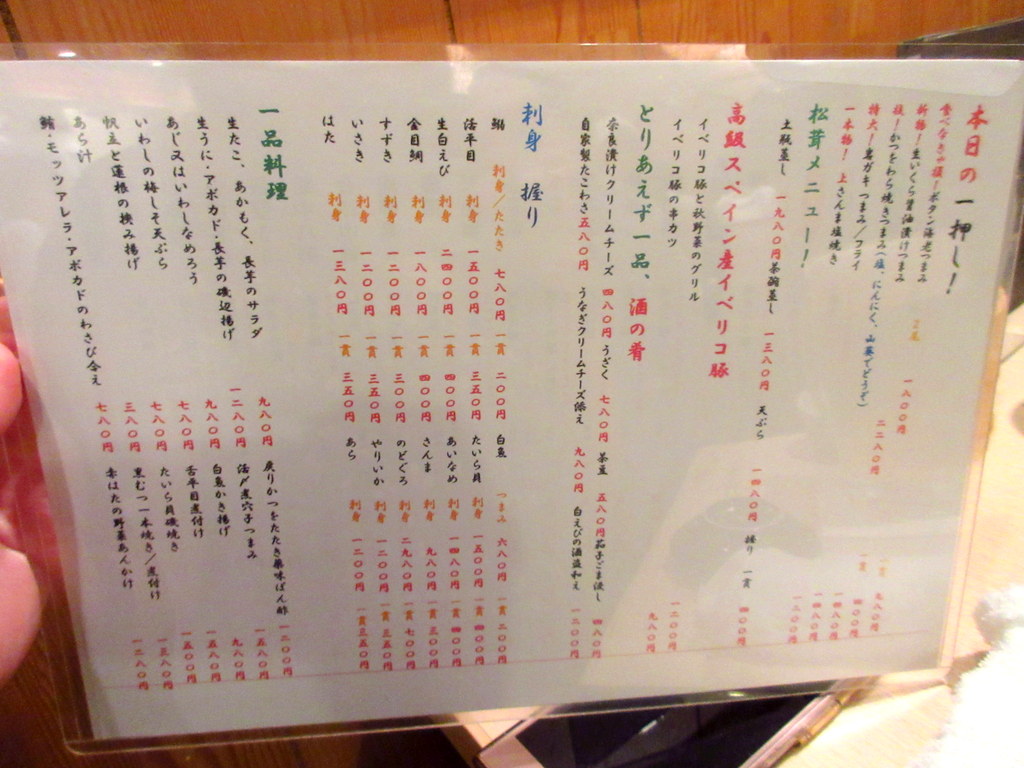 本日の一押し！
食べなきゃ損！ボタン海老つまみ 2尾 一八〇〇円 一貫 九八〇円
新物！生いくら醤油漬けつまみ 一貫 四〇〇円
技！かつをわら焼きつまみ（塩、にんにく、山葵でどうぞ） 二二八〇円 一四八〇円
特大！岩ガキ つまみ／フライ 一四八〇円
一本物！上さんま塩焼き 一二〇〇円
松茸メニュー！
土瓶蒸し 一九八〇円 茶碗蒸し 一三八〇円 天ぷら 一四八〇円 握り 一貫 四〇〇円
高級スペイン産イベリコ豚
イベリコ豚と秋野菜のグリル 一二〇〇円
イベリコ豚の串カツ 九八〇円
とりあえず一品、酒の肴
奈良漬けクリームチーズ 四八〇円 うざく 七八〇円 茶豆 五八〇円 茄子ごま浸し 四八〇円
自家製たこわさ 五八〇円 うなぎクリームチーズ添え 九八〇円 白えびの酒盗和え 一二〇〇円
刺身 握り
鰯 刺身／たたき 七八〇円 一貫 二〇〇円 白魚 つまみ 六八〇円 一貫 二〇〇円
活平目 刺身 一五〇〇円 一貫 三五〇円 たいら貝 刺身 一五〇〇円 一貫 四〇〇円
生白えび 刺身 二四〇〇円 一貫 四〇〇円 あいなめ 刺身 一四八〇円 一貫 四〇〇円
金目鯛 刺身 一八〇〇円 一貫 四〇〇円 さんま 刺身 九八〇円 一貫 三〇〇円
すずき 刺身 一二〇〇円 一貫 三〇〇円 のどぐろ 刺身 二九八〇円 一貫 七〇〇円
いさき 刺身 一二〇〇円 一貫 三五〇円 やりいか 刺身 一二〇〇円 一貫 三五〇円
はた 刺身 一三八〇円 一貫 三五〇円 あら 刺身 一二〇〇円 一貫 三五〇円
一品料理
生たこ、あかもく、長芋のサラダ 九八〇円 炙りかつをたたき薬味ぽん酢 一二〇〇円
生うに・アボカド・長芋の磯辺揚げ 一二八〇円 活〆煮穴子つまみ 一五八〇円
あじ又はいわしなめろう 九八〇円 白魚かき揚げ 九八〇円
いわしの梅しそ天ぷら 七八〇円 舌平目煮付け 一五八〇円
帆立と蓮根の挟み揚げ 七八〇円 たいら貝磯焼き 一五〇〇円
あら汁 三八〇円 黒むつ一本焼き／煮付け 一三八〇円
鮪・モッツァレラ・アボカドのわさび合え 七八〇円 赤はたの野菜あんかけ 一二八〇円